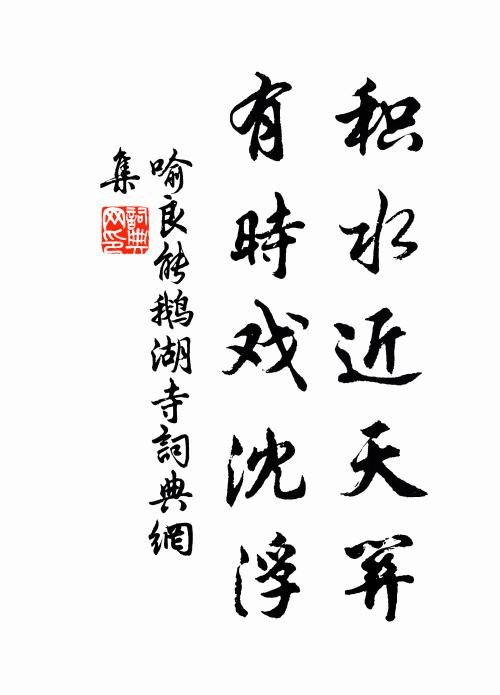 积水近天羿
有時戏沈浮
喻良能鵝湖寺詞典網
集
詞典
网印